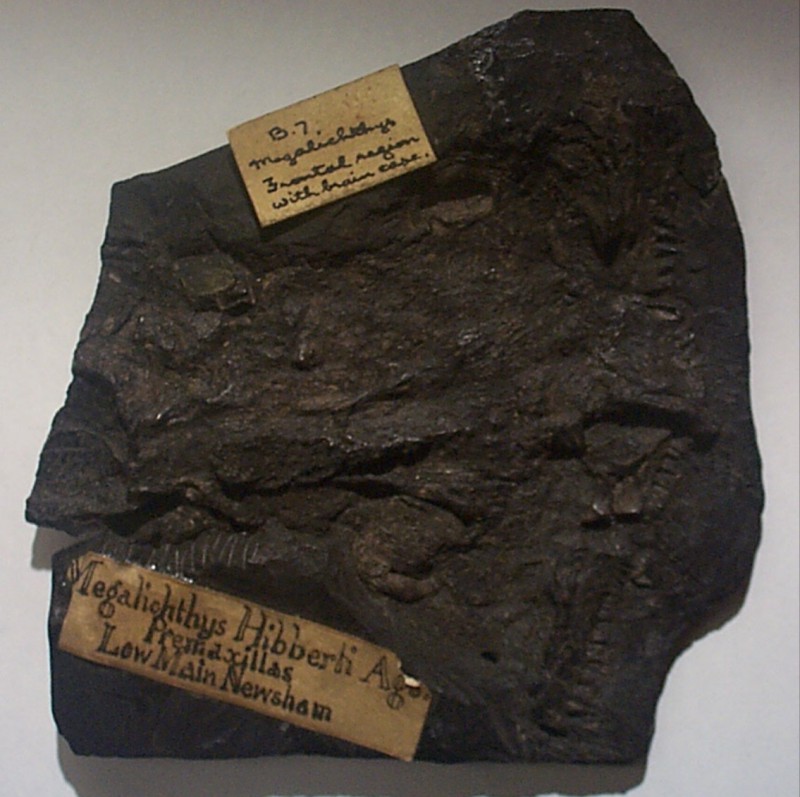 B.7.
Megalichthys
Frontal region
with brain case.
Megalichthys Hibberti Ags.
Premaxillas
Low Main Newsham